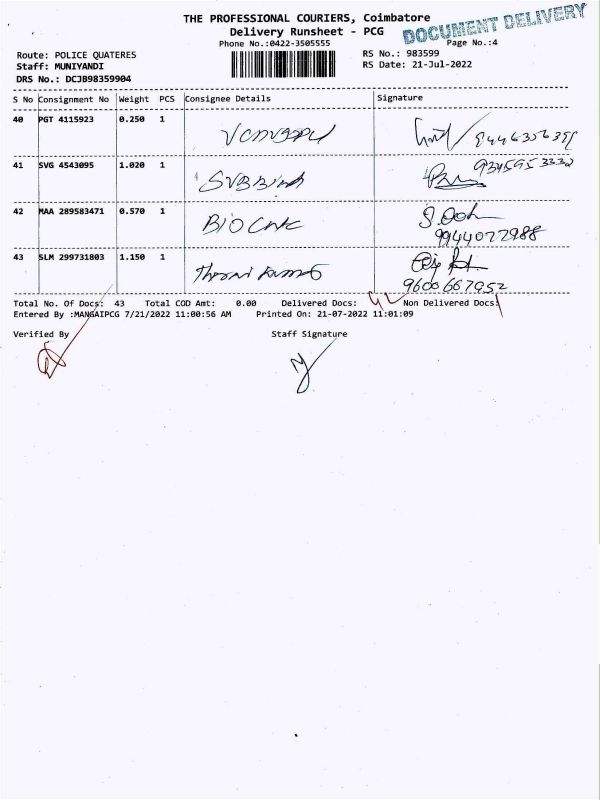 THE PROFESSIONAL COURIERS, Coimbatore
DOCUMENT DELIVERY
Delivery Runsheet - PCG
Phone No.:0422-3505555
Page No.:4
Route: POLICE QUATERES
RS No.: 983599
Staff: MUNIYANDI
RS Date: 21-Jul-2022
DRS No.: DCJB98359904
S No Consignment No Weight PCS Consignee Details Signature
40 PGT 4115923 0.250 1
41 SVG 4543095 1.020 1
9345953332
42 MAA 289583471 0.570 1
9944077988
43 SLM 299731803 1.150 1
9600667052
Total No. Of Docs: 43 Total COD Amt: 0.00 Delivered Docs: 42 Non Delivered Docs: 1
Entered By :MANGAIPCG 7/21/2022 11:00:56 AM Printed On: 21-07-2022 11:01:09
Verified By Staff Signature